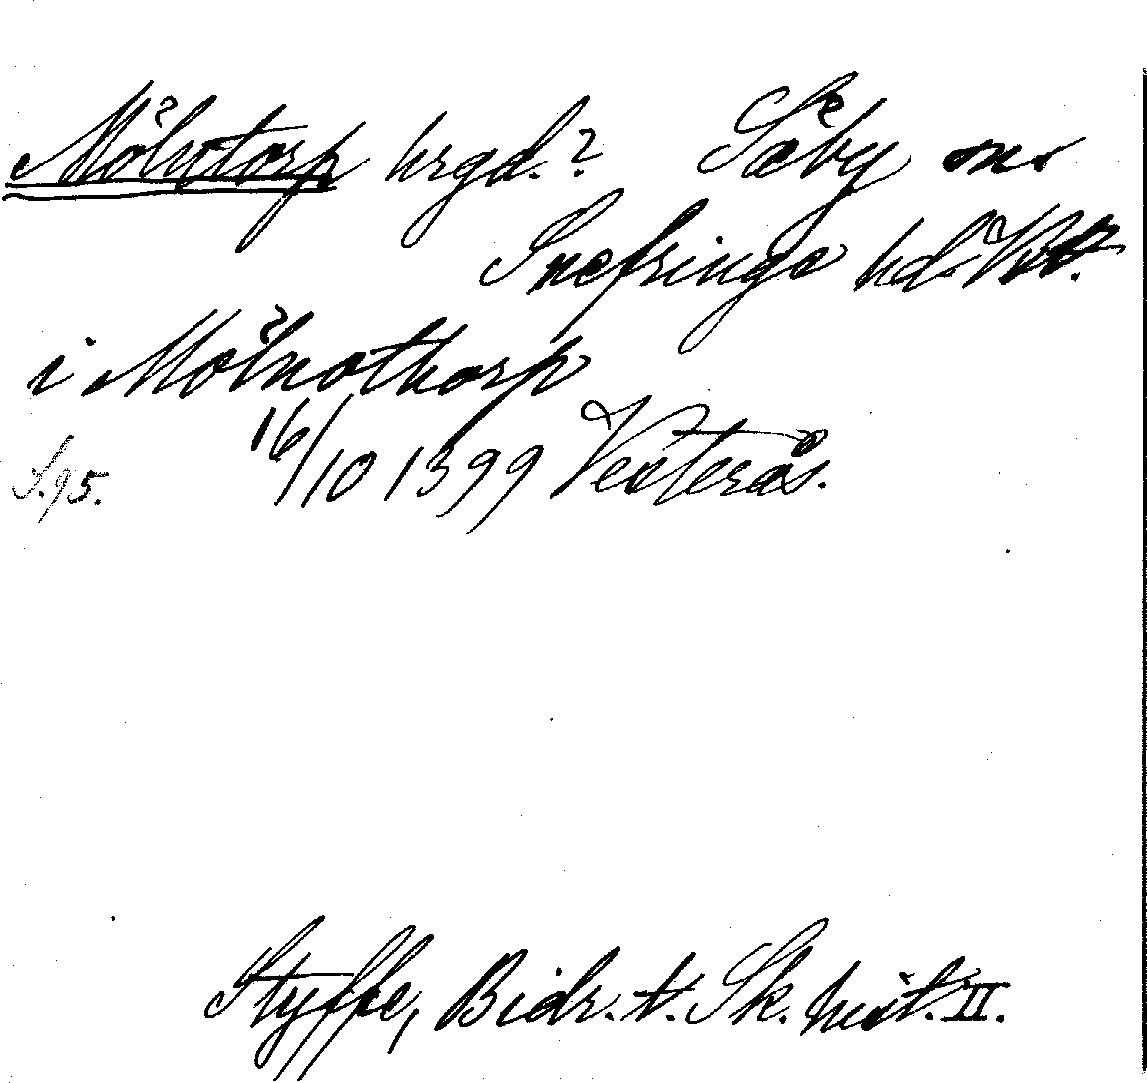 Mölntorp hrgd.? Säby sn
Snefringe hd. Vstm.
i Mölnothorp
16/10 1399 Vesterås.
S. 95.
Styffe, Bidr. t. Sk. hist. II.